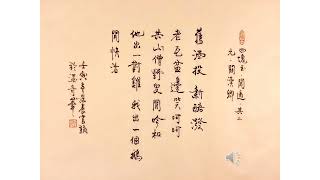 四塊玉 閒適 其二
元 關漢卿
舊酒投 新醅潑
老瓦盆邊笑呵呵
共山僧野叟閒吟和
他出一對雞 我出一個鵝
閒快活